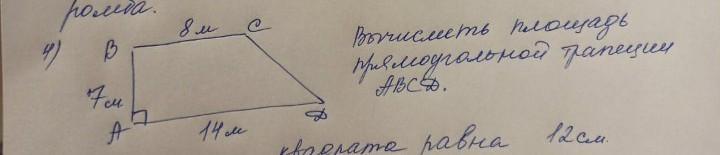 ромба.
4)
B 8 м C
7 м
A 14 м D
Вычислить площадь
прямоугольной трапеции
ABCD.
квадрата равна 12 см.